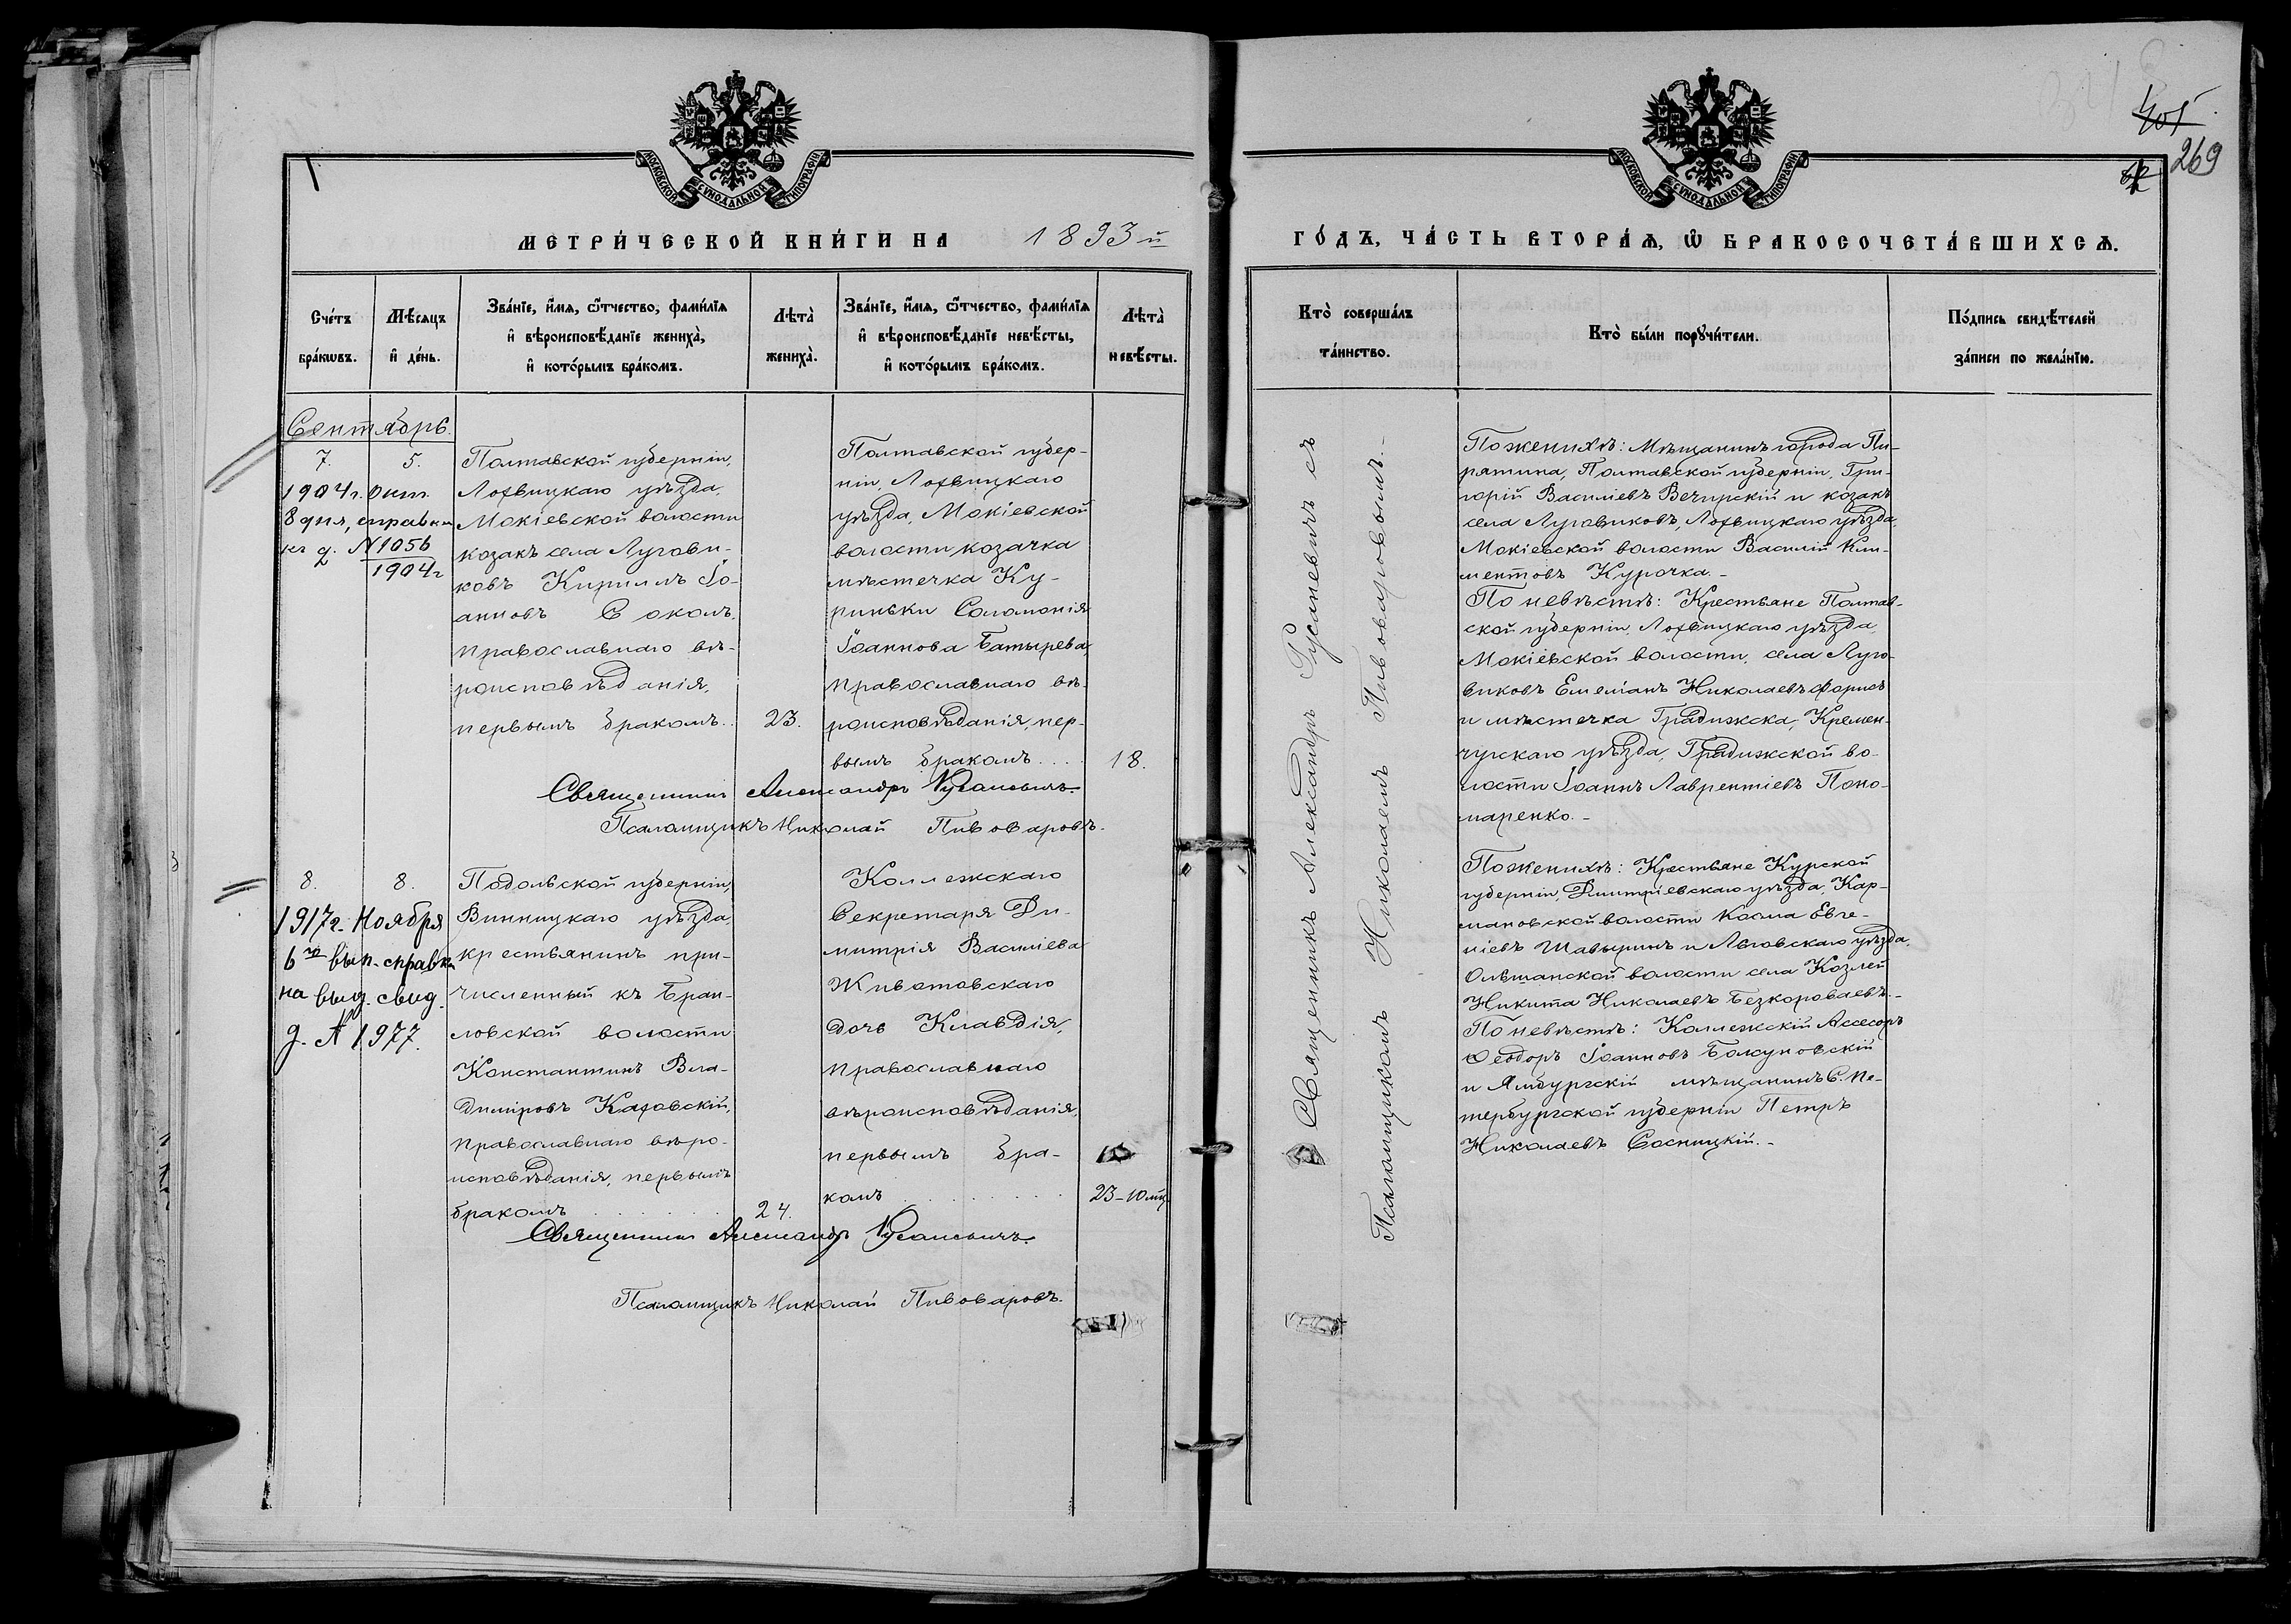 МОСКОВСКОЙ СѴНОДАЛЬНОЙ ТИПОГРАФІИ
МЕТРИ́ЧЕСКОЙ КНИ́ГИ НА 1893 й
Сче́тъ бра́кωвъ.
Мѣ́сяцъ и҆ де́нь.
Зва́нїе, и҆́мя, ѻ҆́тчество, фами́лїя
и҆ вѣроисповѣ́данїе жениха̀,
и҆ кото́рымъ бра́комъ.
Лѣта̀ жениха̀.
Зва́нїе, и҆́мя, ѻ҆́тчество, фами́лїя
и҆ вѣроисповѣ́данїе невѣ́сты,
и҆ кото́рымъ бра́комъ.
Лѣта̀ невѣ́сты.
Сентябрь.
7. 5.
1904 г. Окт.
8 дня, справка
къ д. № 1056
2 1904 г
Полтавской губерніи,
Лохвицкаго уѣзда,
Мокіевской волости
козакъ села Лугови-
ковъ Кириллъ Іо-
анновъ Соколъ,
православнаго вѣ-
роисповѣданія,
первымъ бракомъ..
23.
Полтавской губер-
ніи, Лохвицкаго
уѣзда, Мокіевской
волости козачка
мѣстечка Ку-
риньки Соломонія
Іоаннова Батырева,
православнаго вѣ-
роисповѣданія, пер-
вымъ бракомъ....
18.
Священникъ Александръ Русаневичъ.
Псаломщикъ Николай Пивоваровъ.
8. 8.
1917 г. Ноября
6 го вып. справка
на выд. свид.
д. № 1977.
Подольской губерніи,
Винницкаго уѣзда,
крестьянинъ при-
численный къ Браи-
ловской волости
Константинъ Вла-
диміровъ Каховскій,
православнаго вѣро-
исповѣданія, первымъ
бракомъ
24.
Коллежскаго
Секретаря Ди-
митрія Васильева
Животовскаго
дочь Клавдія,
православнаго
вѣроисповѣданія,
первымъ бра-
комъ
23-10 мѣс.
Священникъ Александръ Русаневичъ.
Псаломщикъ Николай Пивоваровъ.
401
269
МОСКОВСКОЙ СѴНОДАЛЬНОЙ ТИПОГРАФІИ
ГО́ДЪ, ЧА́СТЬ ВТОРА́Я, Ѽ БРАКОСОЧЕТА́ВШИХСЯ.
Кто̀ соверша́лъ
та́инство.
Кто̀ бы́ли порꙋчи́тели.
По́дпись свидѣ́телей
за́писи по жела́нїю.
Священникъ Александръ Русаневичъ съ
Псаломщикомъ Николаемъ Пивоваровымъ.-
По женихѣ: Мѣщанинъ города Пи-
рятина, Полтавской губерніи, Гри-
горій Василіевъ Вечирскій и козакъ
села Луговиковъ, Лохвицкаго уѣзда,
Мокіевской волости Василій Кли-
ментовъ Курочка.-
По невѣстѣ: Крестьяне Полтав-
ской губерніи, Лохвицкаго уѣзда,
Мокіевской волости, села Луго-
виковъ Емеліанъ Николаевъ Форисъ
и мѣстечка Градижска, Кремен-
чугскаго уѣзда, Градижской во-
лости Іоаннъ Лаврентіевъ Поно-
маренко.-
По женихѣ: Крестьяне Курской
губерніи, Дмитріевскаго уѣзда, Кар-
мановской волости Косма Евге-
ніевъ Шавыринъ и Льговскаго уѣзда,
Ольшанской волости села Козлей
Никита Николаевъ Безкороваевъ.-
По невѣстѣ: Коллежскій Ассесоръ
Ѳеодоръ Іоанновъ Бокуновскій
и Ямбургскій мѣщанинъ С. Пе-
тербургской губерніи Петръ
Николаевъ Сосницкій.-